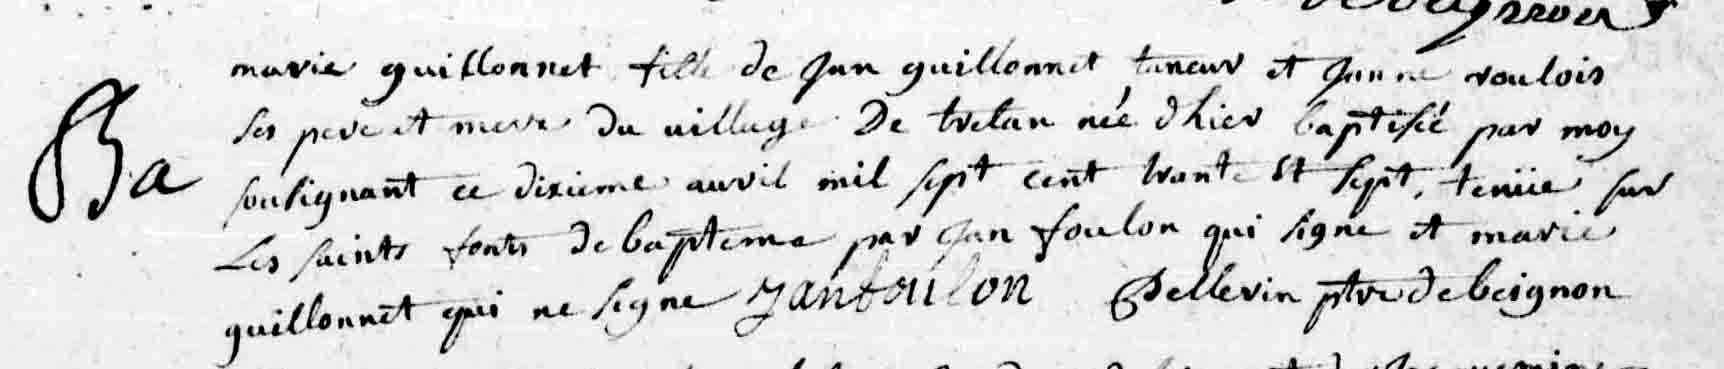 marie guillonnet fille de Jan guillonnet taneur et Janne roulois
Ba
ses pere et mere du village De trelan née d'hier baptisée par moy
sousignant ce dixieme avril mil sept cent trante et sept, tenüe sur
Les saints fonts de bapteme par Jan foulon qui signe et marie
guillonnet qui ne signe Janfoulon Pellerin ptre de beignon